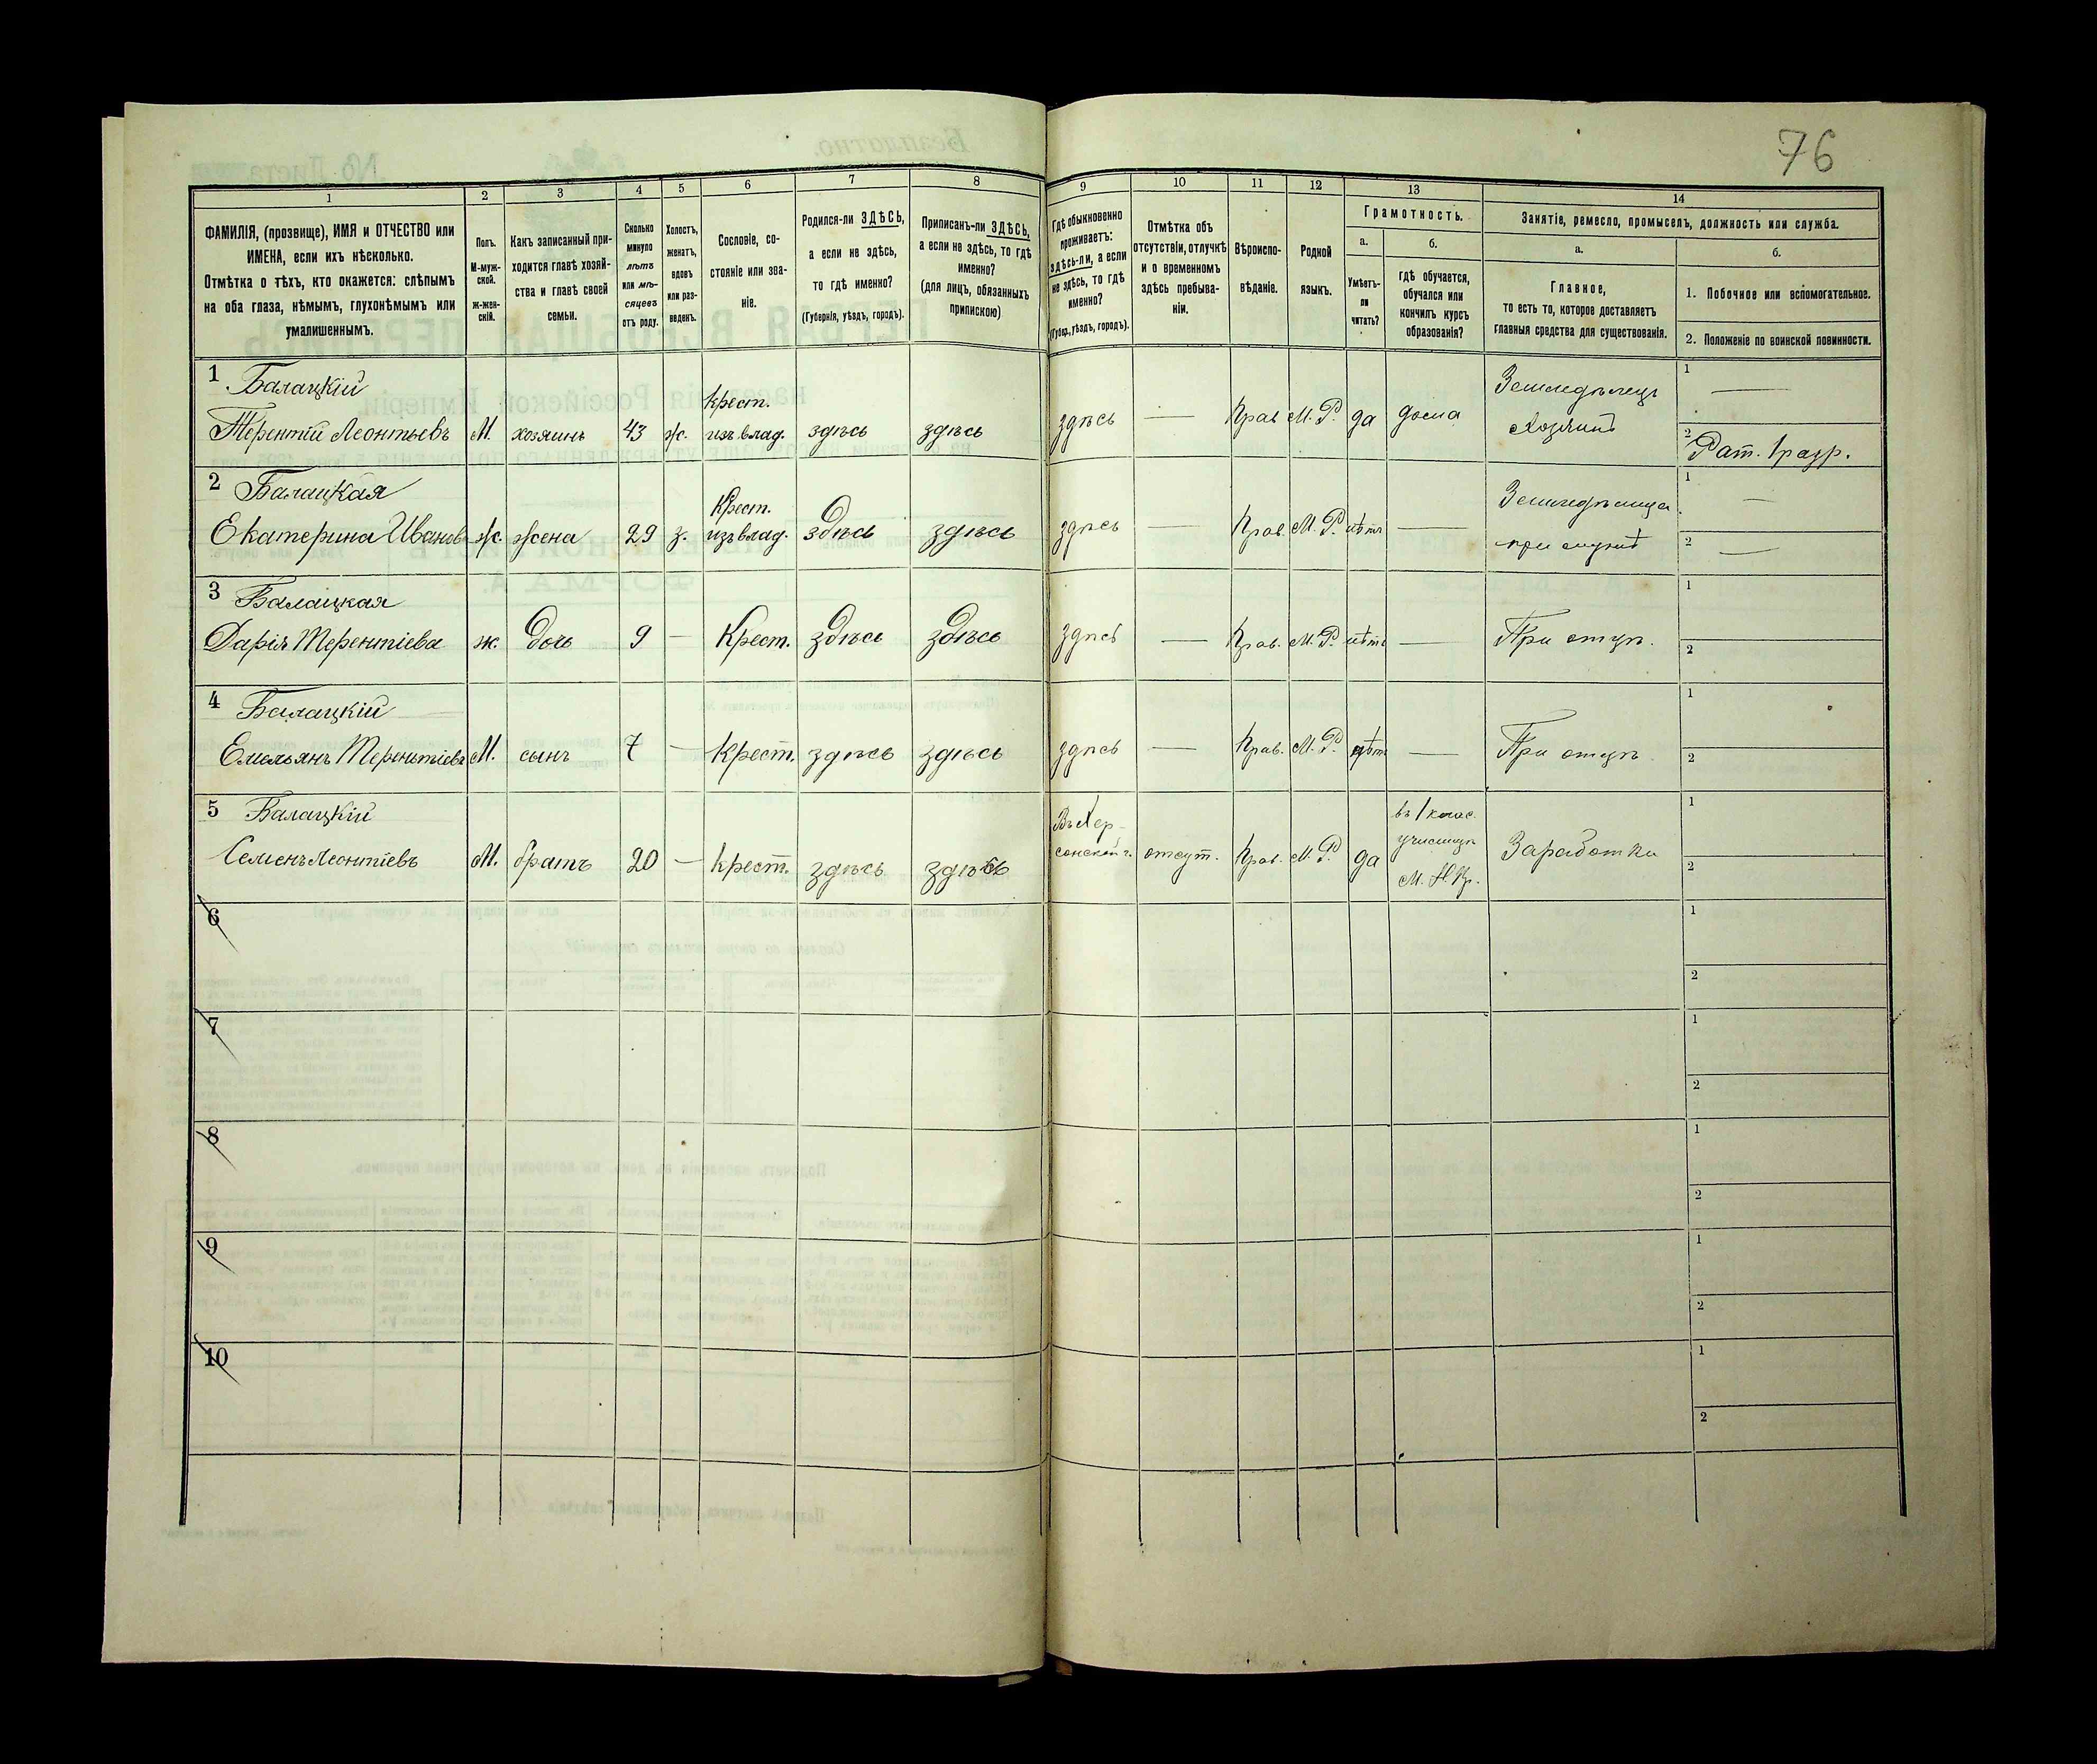 76
1
2
3
4
5
6
7
8
9
10
11
12
13
14
ФАМИЛІЯ, (прозвище), ИМЯ и ОТЧЕСТВО или
ИМЕНА, если ихъ нѣсколько.
Отмѣтка о тѣхъ, кто окажется: слѣпымъ
на оба глаза, нѣмымъ, глухонѣмымъ или
умалишеннымъ.
Полъ.
М-муж-
ской.
ж-жен-
скій.
Какъ записанный при-
ходится главѣ хозяй-
ства и главѣ своей
семьи.
Сколько
минуло
лѣтъ
или мѣ-
сяцевъ
отъ роду.
Холостъ,
женатъ,
вдовъ
или раз-
веденъ.
Сословіе, со-
стояніе или зва-
ніе.
Родился-ли ЗДѢСЬ,
а если не здѣсь,
то гдѣ именно?
(Губернія, уѣздъ, городъ).
Приписанъ-ли ЗДѢСЬ,
а если не здѣсь, то гдѣ
именно?
(для лицъ, обязанныхъ
припискою)
Гдѣ обыкновенно
проживаетъ:
здѣсь-ли, а если
не здѣсь, то гдѣ
именно?
(Губер., уѣздъ, городъ).
Отмѣтка объ
отсутствіи, отлучкѣ
и о временномъ
здѣсь пребыва-
ніи.
Вѣроиспо-
вѣданіе.
Родной
языкъ.
Грамотность.
а.
б.
Умѣетъ-
ли
читать?
гдѣ обучается,
обучался или
кончилъ курсъ
образованія?
Занятіе, ремесло, промыселъ, должность или служба.
а.
б.
Главное,
то есть то, которое доставляетъ
главныя средства для существованія.
1. Побочное или вспомогательное.
2. Положеніе по воинской повинности.
1 Балацкій
Терентій Леонтьевъ М. хозяинъ 43 ж. крест. изъ влад. здѣсь здѣсь здѣсь — Прав М. Р. да дома Земледѣлецъ хозяинъ
1 —
2 Рат. 1 разр.
2 Балацкая
Екатерина Иванов ж. жена 29 з. Крест. изъ влад. здѣсь здѣсь здѣсь — Прав. М. Р. нѣтъ —
1 —
2 —
3 Балацкая
Дарія Терентіева ж. дочь 9 — Крест. здѣсь здѣсь здѣсь — Прав. М. Р. нѣтъ — При отцѣ.
1
2
4 Балацкій
Емельянъ Терентіевъ М. сынъ 7 — Крест. здѣсь здѣсь здѣсь — Прав. М. Р. нѣтъ — При отцѣ.
1
2
5 Балацкій
Семенъ Леонтіевъ М. братъ 20 — крест. здѣсь здѣсь Въ Хер-
сонской г. отсут. Прав. М. Р. да въ 1 клас.
училищѣ
Заработки
1
2
6
1
2
7
1
2
8
1
2
9
1
2
10
1
2